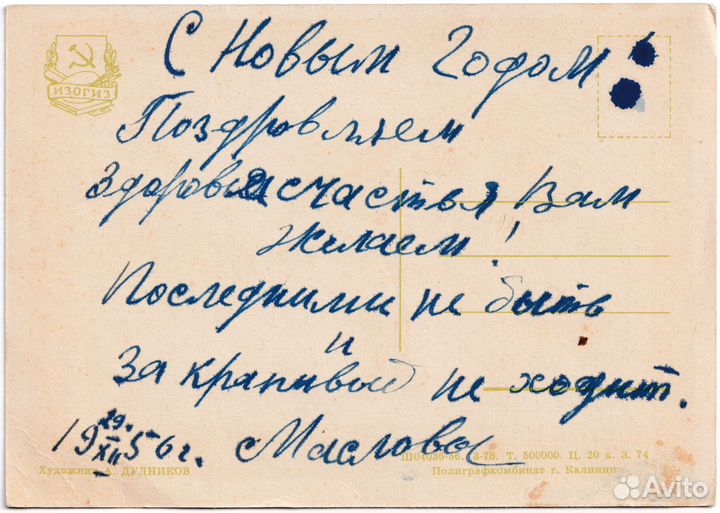 ИЗОГИЗ
С Новым Годом!
Поздровляем
Здоровья счастья Вам
желаем!
Последними не быть
и
За крапивой не ходит.
29.
19 XII 56 г. Масловы
Художник А. ДУДНИКОВ
Ш04036-56. Т. 500000. Ц. 20 к. З. 74
Полиграфкомбинат г. Калинин
Avito